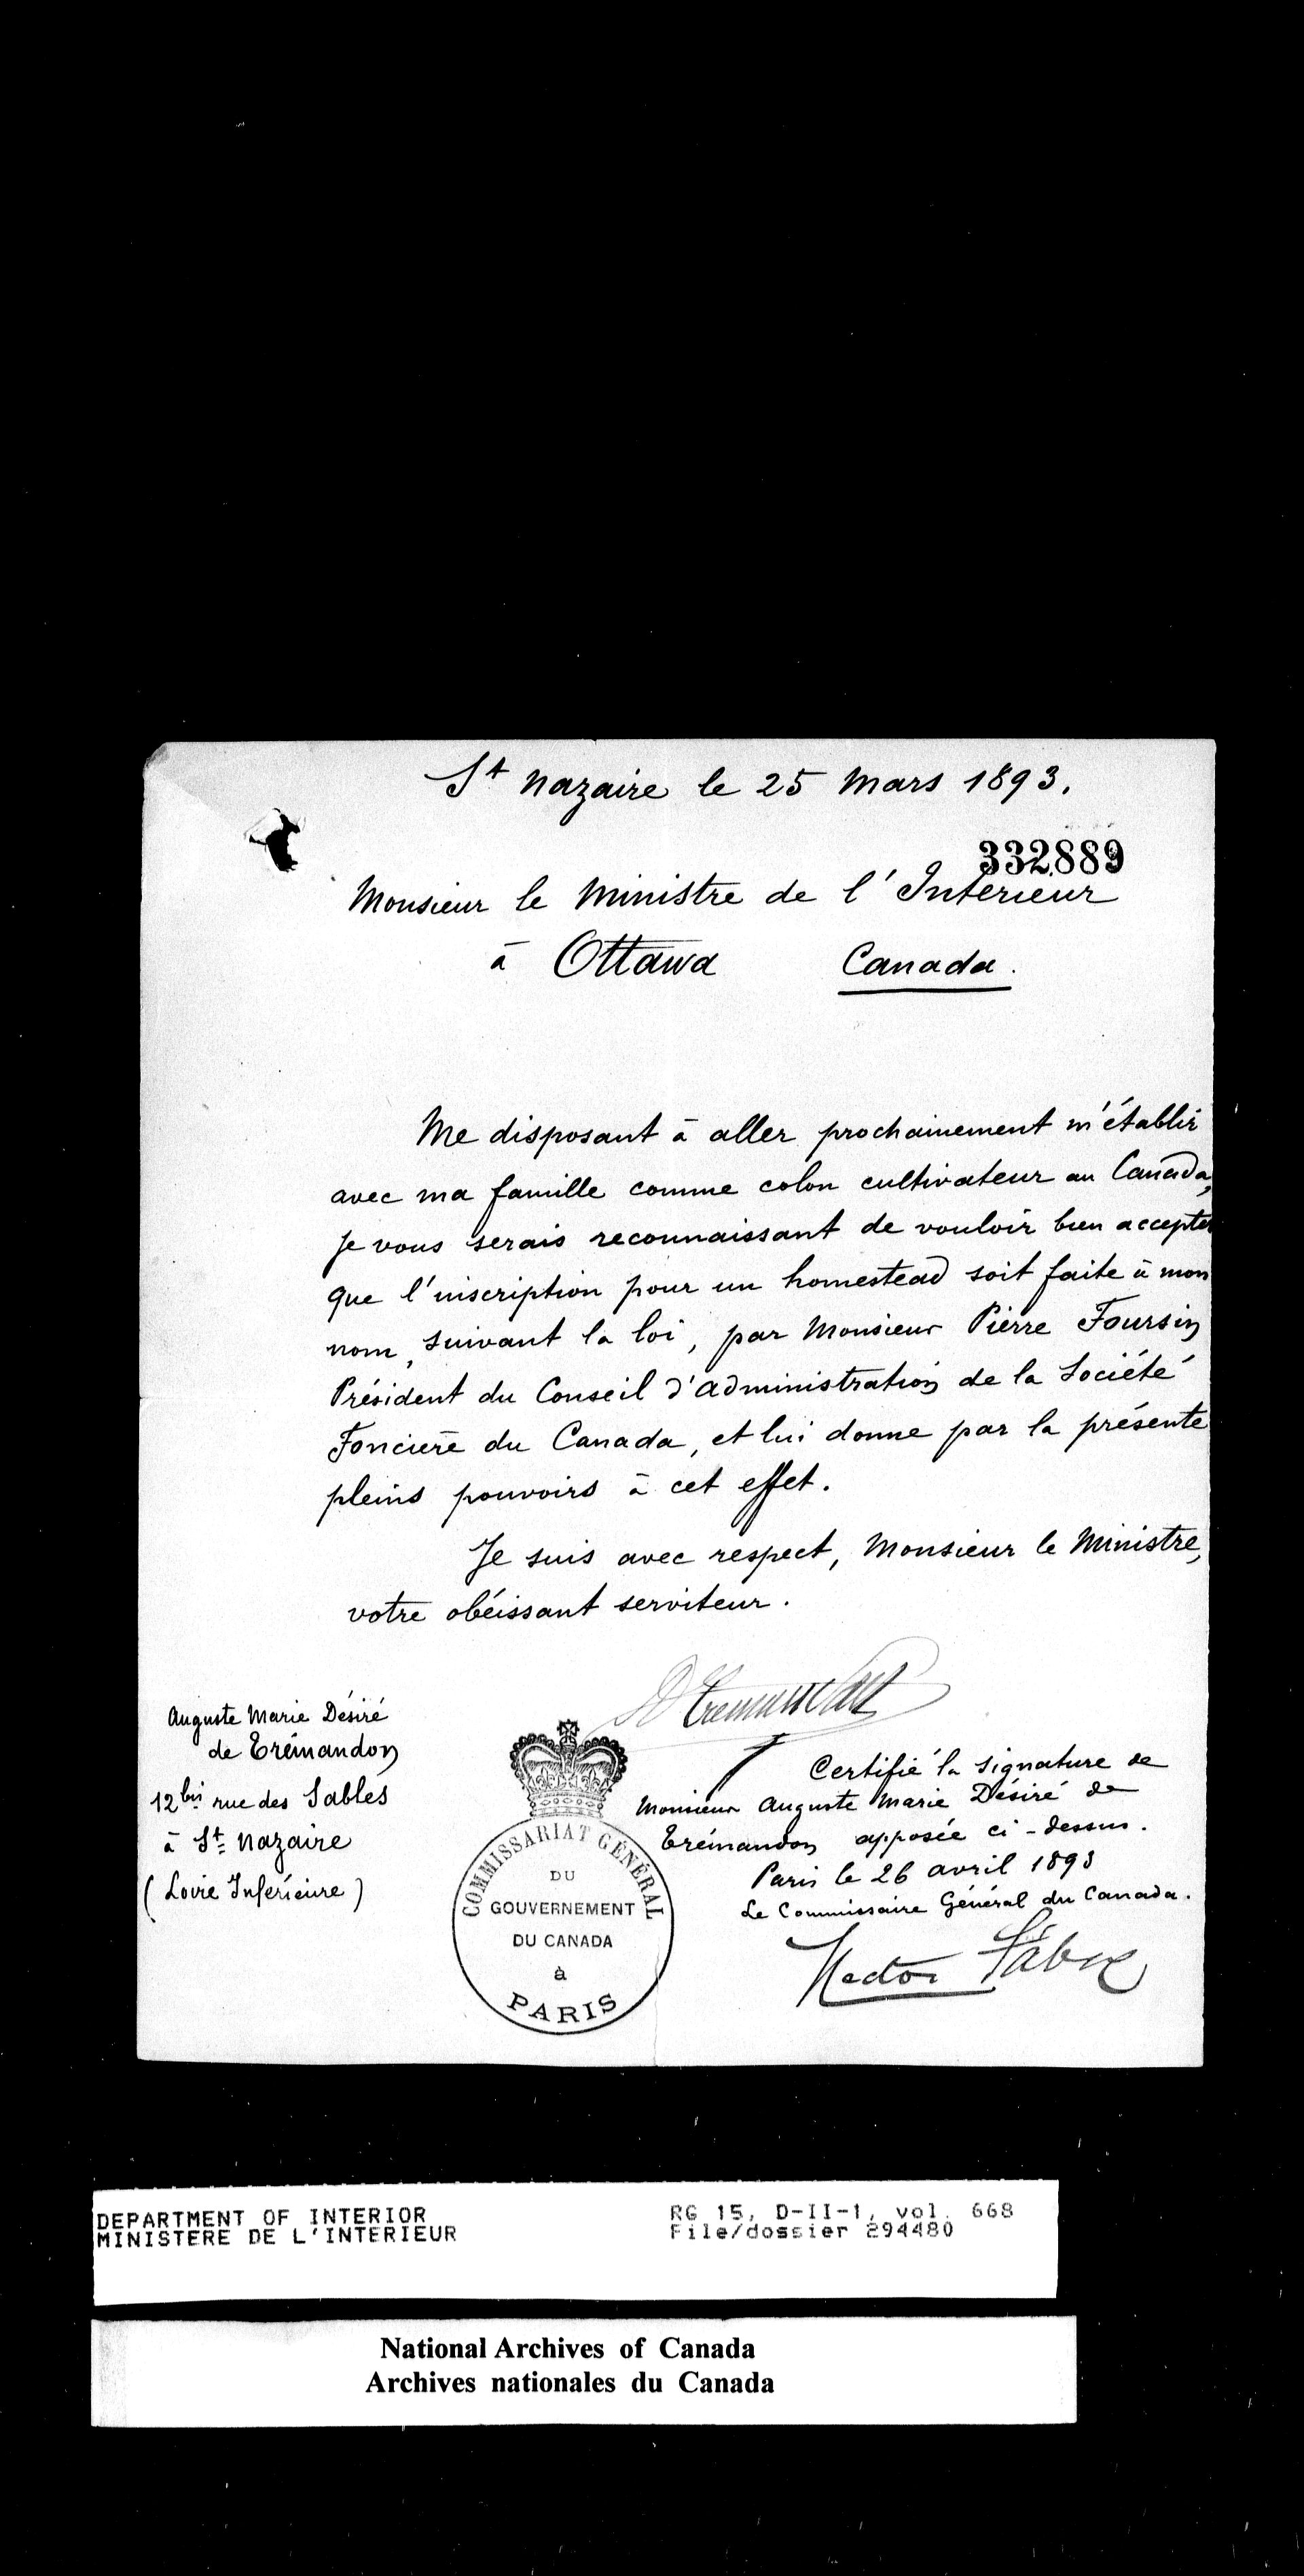 St Nazaire le 25 Mars 1893.
332889
Monsieur le Ministre de l'Intérieur
à Ottawa Canada.
Me disposant à aller prochainement m'établir
avec ma famille comme colon cultivateur au Canada,
je vous serais reconnaissant de vouloir bien accepter
que l'inscription pour un homestead soit faite à mon
nom, suivant la loi, par Monsieur Pierre Foursin
Président du Conseil d'administration de la Société
Foncière du Canada, et lui donne par la présente
pleins pouvoirs à cet effet.
Je suis avec respect, Monsieur le Ministre,
votre obéissant serviteur.
Auguste Marie Désiré
de Trémandon
12 bis rue des Sables
à St Nazaire
(Loire Inférieure)
COMMISSARIAT GÉNÉRAL
DU
GOUVERNEMENT
DU CANADA
à
PARIS
Certifié la signature de
Monsieur Auguste Marie Désiré de
Trémandon apposée ci-dessus.
Paris le 26 avril 1893
Le Commissaire Général du Canada.
Hector Fabre
DEPARTMENT OF INTERIOR
MINISTERE DE L'INTERIEUR
RG 15, D-II-1, vol. 668
File/dossier 294480
National Archives of Canada
Archives nationales du Canada